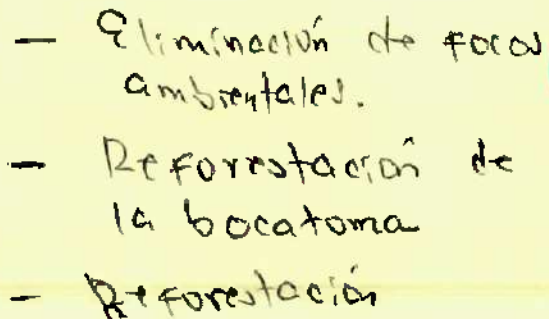 — Eliminación de focos
ambientales.
— Reforestación de
la bocatoma
- Reforestación